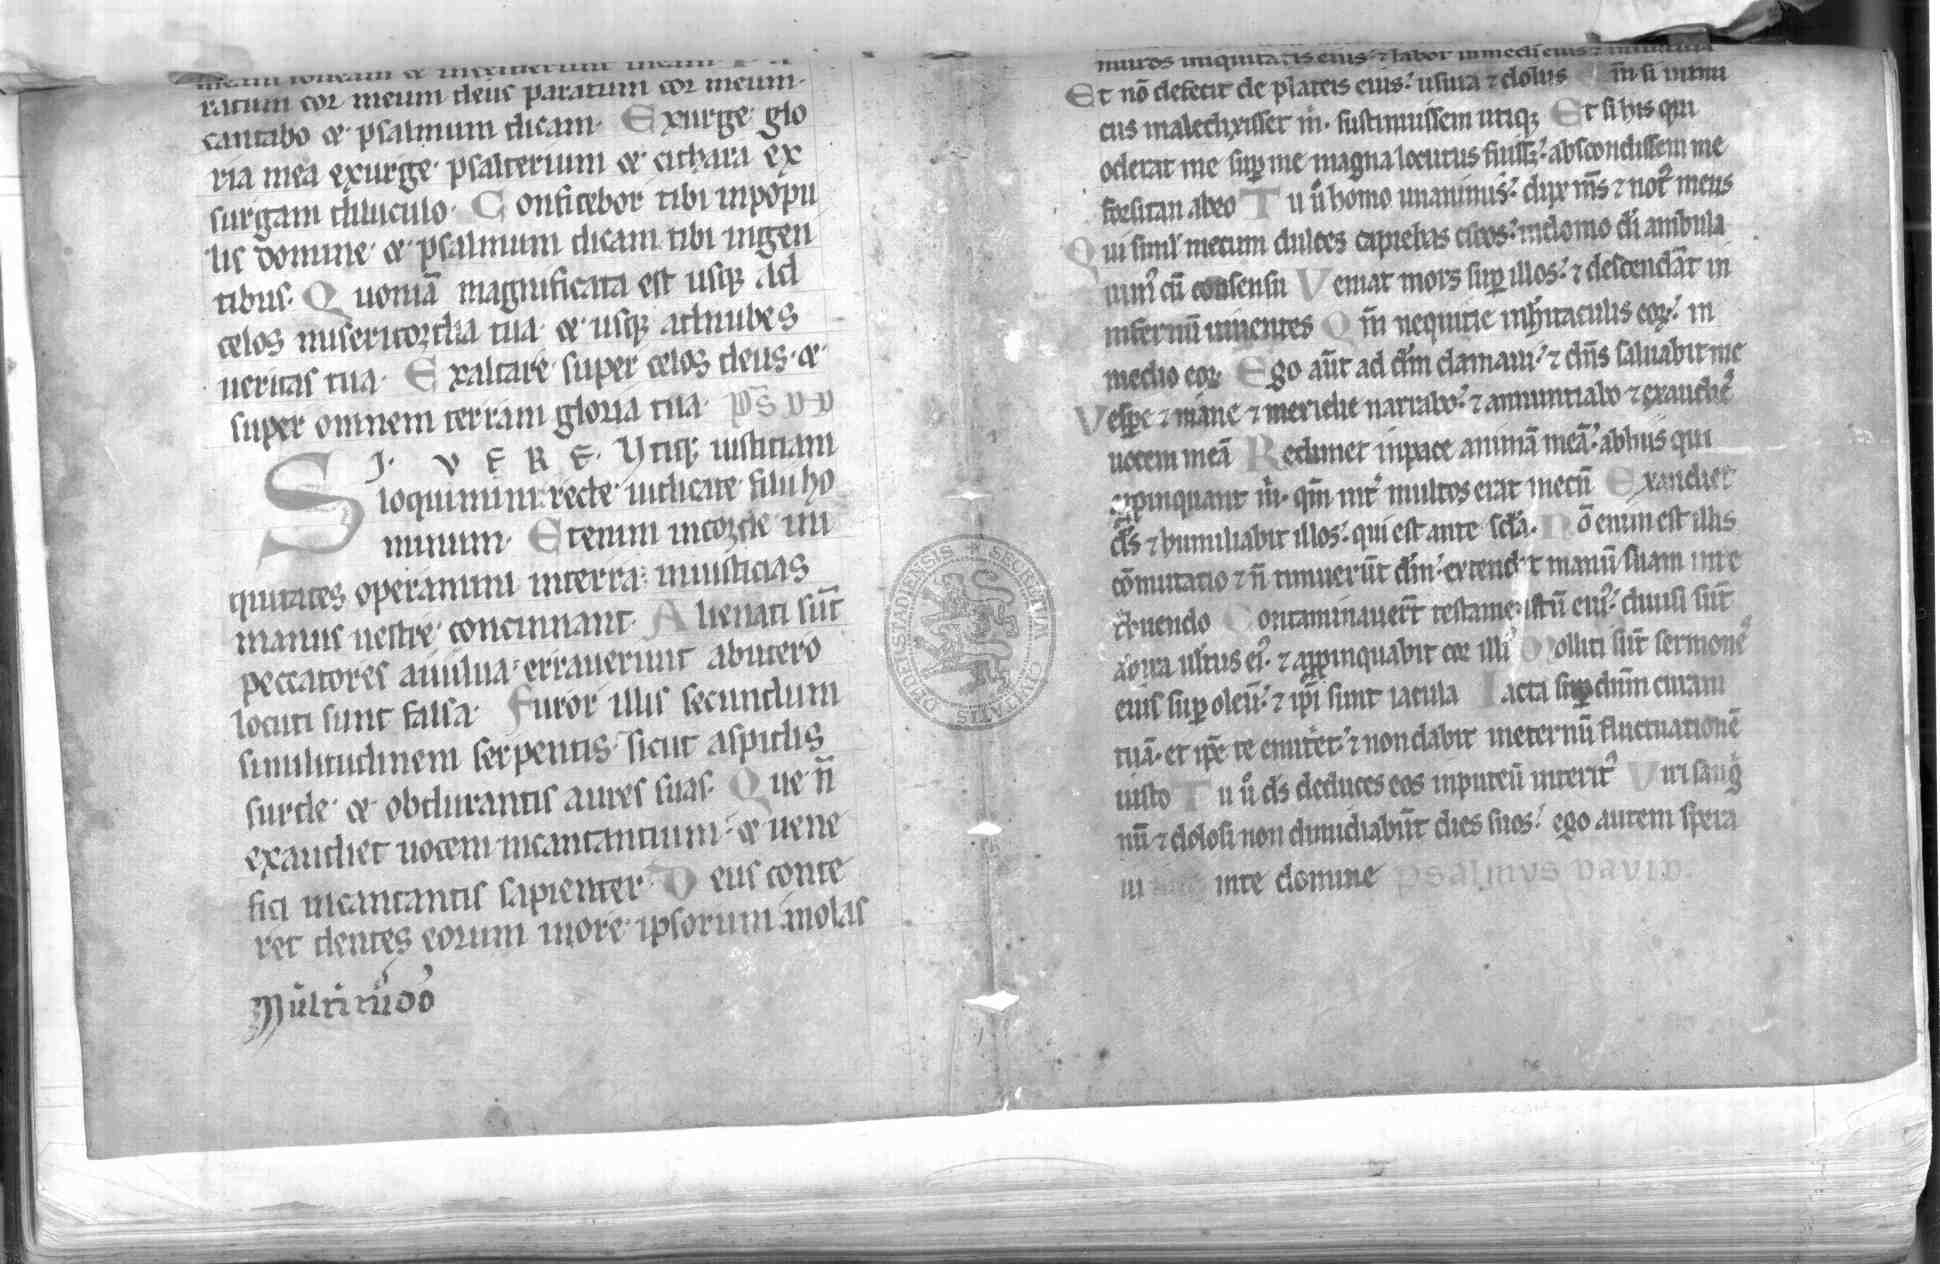 meam foueam & inciderunt in eam
ratum cor meum deus paratum cor meum·
cantabo & psalmum dicam· Exurge glo
ria mea exurge psalterium & cithara ex
surgam diluculo· Confitebor tibi inpopu
lis domine· & psalmum dicam tibi ingen
tibus· Quoniā magnificata est usq; ad
celos misericordia tua· & usq; adnubes
ueritas tua· Exaltare super celos deus· &
super omnem terram gloria tua·
SI· VERE· Utiq; iusticiam
loquimini: recte iudicate filii ho
minum· Etenim incorde ini
quitates operamini interra: iniusticias
manus uestre concinnant· Alienati sūt
peccatores auulua· errauerunt abutero
locuti sunt falsa· Furor illis secundum
similitudinem serpentis· sicut aspidis
surde· & obdurantis aures suas· Que n̄
exaudiet uocem incantantium· & uene
fici incantantis sapienter· Deus conte
ret dentes eorum inore ipsorum molas
Multitudo
muros iniquitatis eius· ⁊ labor inmedi eius ⁊ iniusticia
Et nō defecit de plateis eius· usura ⁊ dolus Qm̄ si inimi
cus maledixisset m̄· sustinuissem utiq; Et si his qui
oderat me sup me magna locutus fuiss;· abscondissem me
forsitan abeo Tu ů homo unanimis· dux m̄s ⁊ not᷒ meus
Qui siml̄ mecum dulces capiebas cibos· indomo dī ambula
uim᷒ cū consensu Veniat mors sup illos· ⁊ descendāt in
infernū uiuentes Qm̄ nequitie inhītaculis eoꝝ· in
medio eoꝝ Ego aūt ad dm̄ clamaui· ⁊ dn̄s saluabit me
Vespe ⁊ mane ⁊ meridie narrabo· ⁊ annuntiabo ⁊ exaudiet
uocem meā Redimet inpace animā meā· abhis qui
appinquant m̄· qm̄ int᷒ multos erat mecū Exaudiet
ds̄ ⁊ humiliabit illos· qui est ante scl̄a· Nō enim est illis
cōmutatio ⁊ n̄ timuerūt dm̄· extendit manū suam inre
tribuendo Contaminauer̄t testamentū eius· diuisi sūt
abira uultus ei᷒· ⁊ appinquabit cor illi᷒ Molliti sūt sermone᷒
eius sup oleū· ⁊ ip̄i sunt iacula Iacta sup dnm̄ curam
tuā· et ip̄e te enutriet· ⁊ nondabit ineternū fluctuationē
iusto Tu ů ds̄ deduces eos inputeū interit᷒ Viri sangui
nū ⁊ dolosi non dimidiabūt dies suos· ego autem spera
ui inte domine Psalmvs david·
SECRETUM CIVITATIS